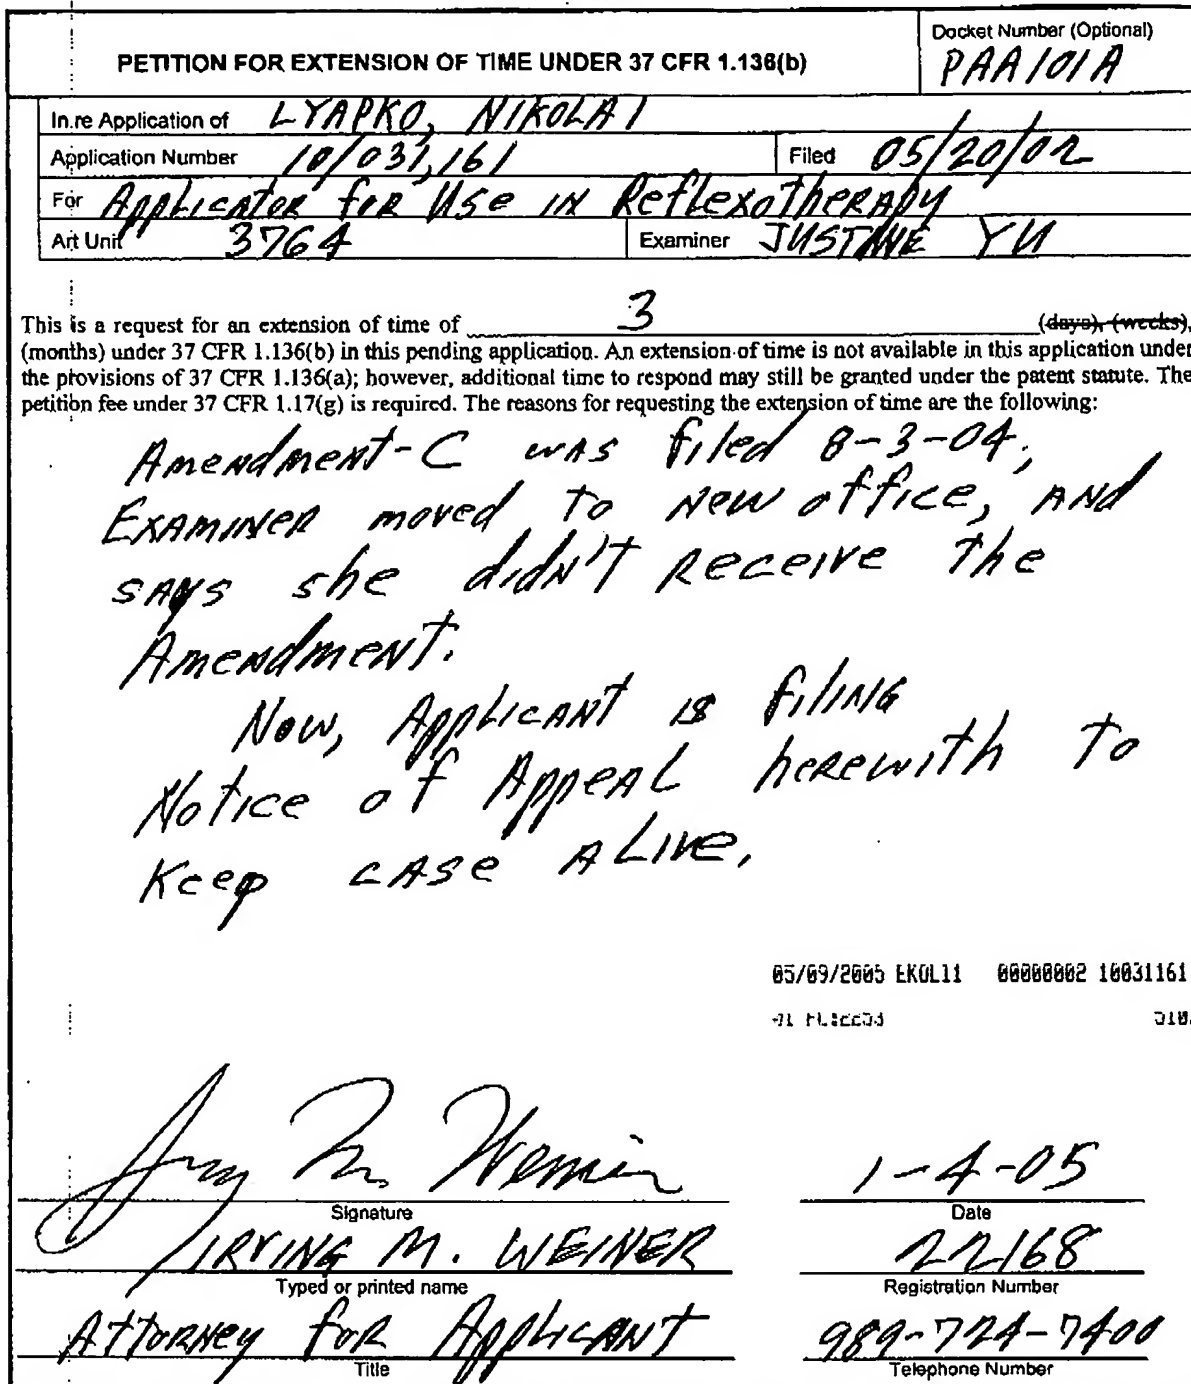 Docket Number (Optional)
PETITION FOR EXTENSION OF TIME UNDER 37 CFR 1.136(b) PAA101A
In re Application of LYAPKO, NIKOLAI
Application Number 10/031,161 Filed 05/20/02
For Applicator for Use in Reflexotherapy
Art Unit 3764 Examiner JUSTINE YU
This is a request for an extension of time of 3 (days), (weeks),
(months) under 37 CFR 1.136(b) in this pending application. An extension of time is not available in this application under
the provisions of 37 CFR 1.136(a); however, additional time to respond may still be granted under the patent statute. The
petition fee under 37 CFR 1.17(g) is required. The reasons for requesting the extension of time are the following:
Amendment-C was filed 8-3-04;
Examiner moved to new office, and
says she didn't receive the
Amendment.
Now, Applicant is filing
Notice of Appeal herewith to
Keep case alive.
05/09/2005 EKOL11 00000002 10031161
Irving M. Weiner 1-4-05
Signature Date
IRVING M. WEINER 22168
Typed or printed name Registration Number
Attorney for Applicant 989-724-7400
Title Telephone Number